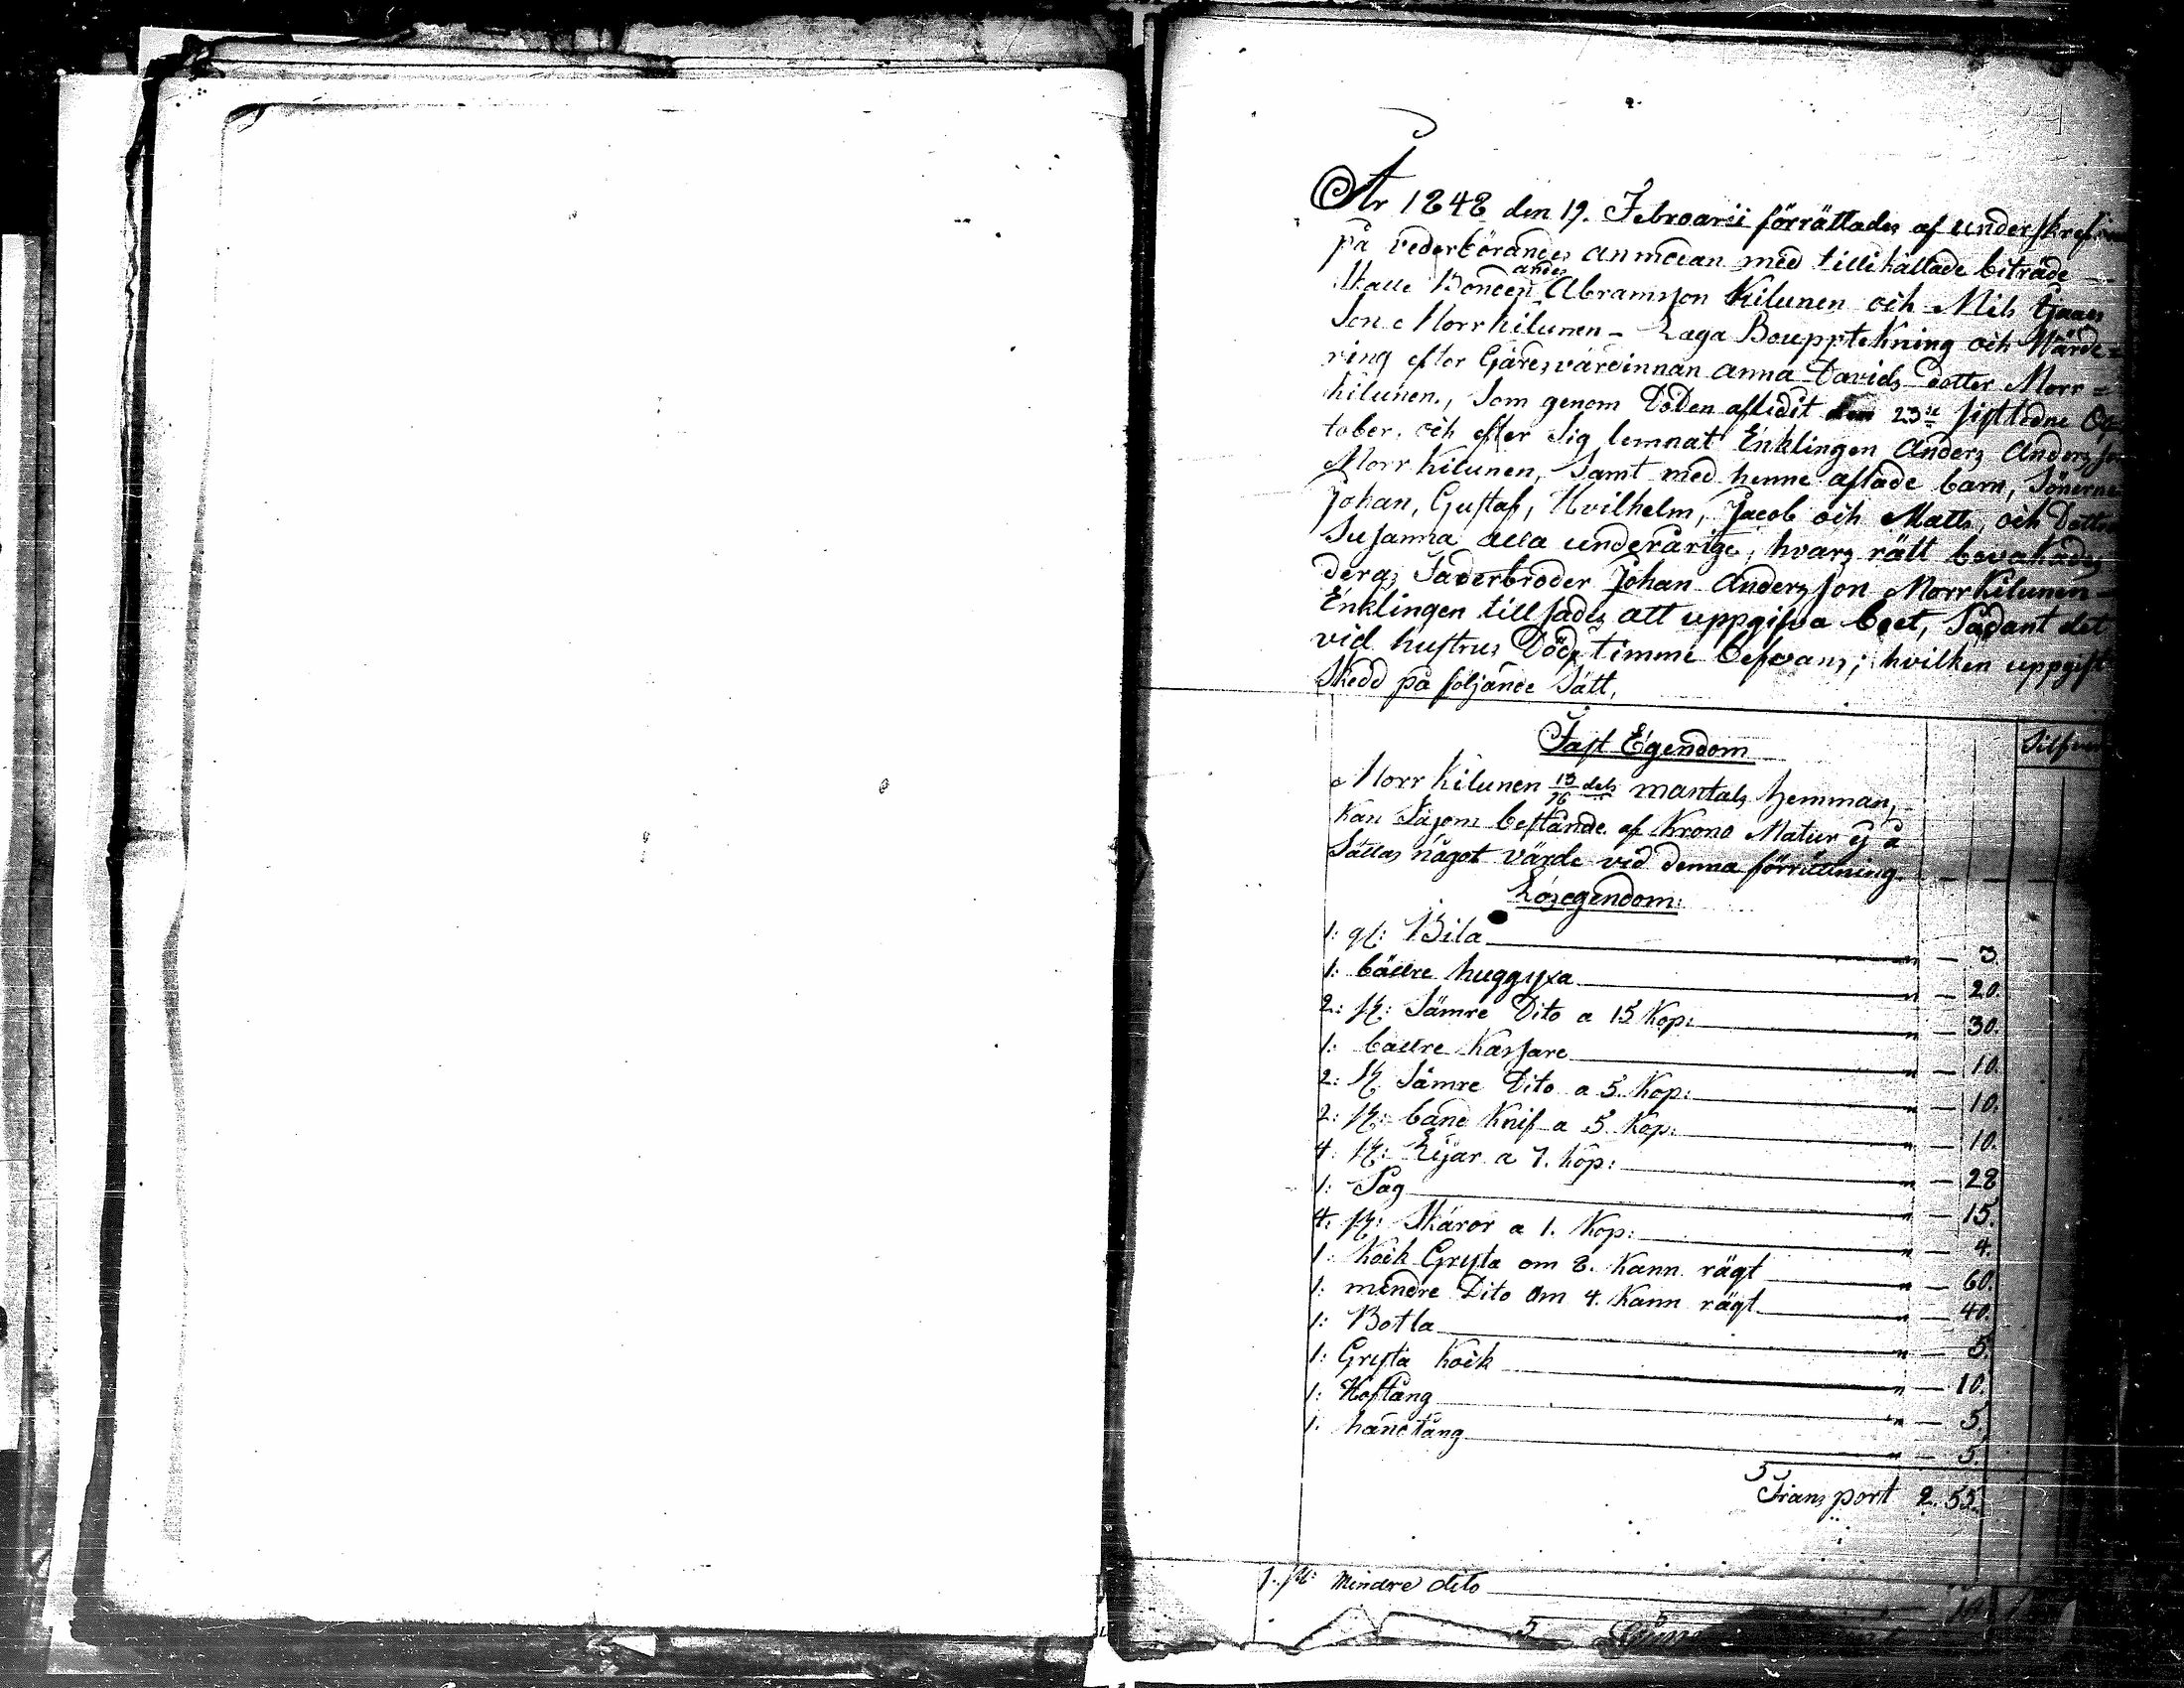 År 1848 den 19. Febroarii förrättades af underskrefne
på vederbörandes anmodan med tillihållade biträde
Anders
Skatte Bonden Abramsson Kilunen och Nils
Son Norrkilunen - Laga Bouppteckning och Wärde=
ring efter Gårdsvärdinnan Anna Davids dotter Norr=
kilunen, Som genom Döden aflidit den 23de sistledne Oc
tober, och efter Sig lemnat Enklingen Anders Andersson
Norrkilunen, Samt med henne aflade barn, Sönerne
Johan, Gustaf, Wilhelm, Jacob och Matts, och Dottren
Susanna alla underårige, hvars rätt bevakades
deras Faderbroder Johan Andersson Norrkilunen -
Enklingen tillsades att uppgifva boet, Sådant det
vid hustrus Dödstimme befans; hvilken uppgift
Skedd på följande Sätt,
Fast Egendom
Silfver
Norrkilunen 13/96 dels mantals hemman,
Kan Såsom bestånde af Krono Natur ej å
Sättas något värde vid denna förrättning.
Lösegendom:
1: gl: Bila " — 3.
1: bättre huggyxa " — 20.
2: st: Sämre Dito a 15 Kop: " — 30.
1: bättre Kassare " — 10.
2: St Sämre Dito a 5. Kop: " — 10.
2: st: band Knif a 5 Kop: " — 10.
4: st: Lijar a 7. Kop: " — 28
1: Såg " — 15.
4: st: Skäror a 1. Kop: " — 4.
1: Kock Gryta om 8. Kann rägt " — 60.
1: mindre Dito om 4. Kann rägt " — 40.
1: Botla " — 5.
1: Gryta Kock " — 10.
1: Hoftång " — 5.
1: handtång " — 5.
Transport 2. 55.
1. st: Mindre dito